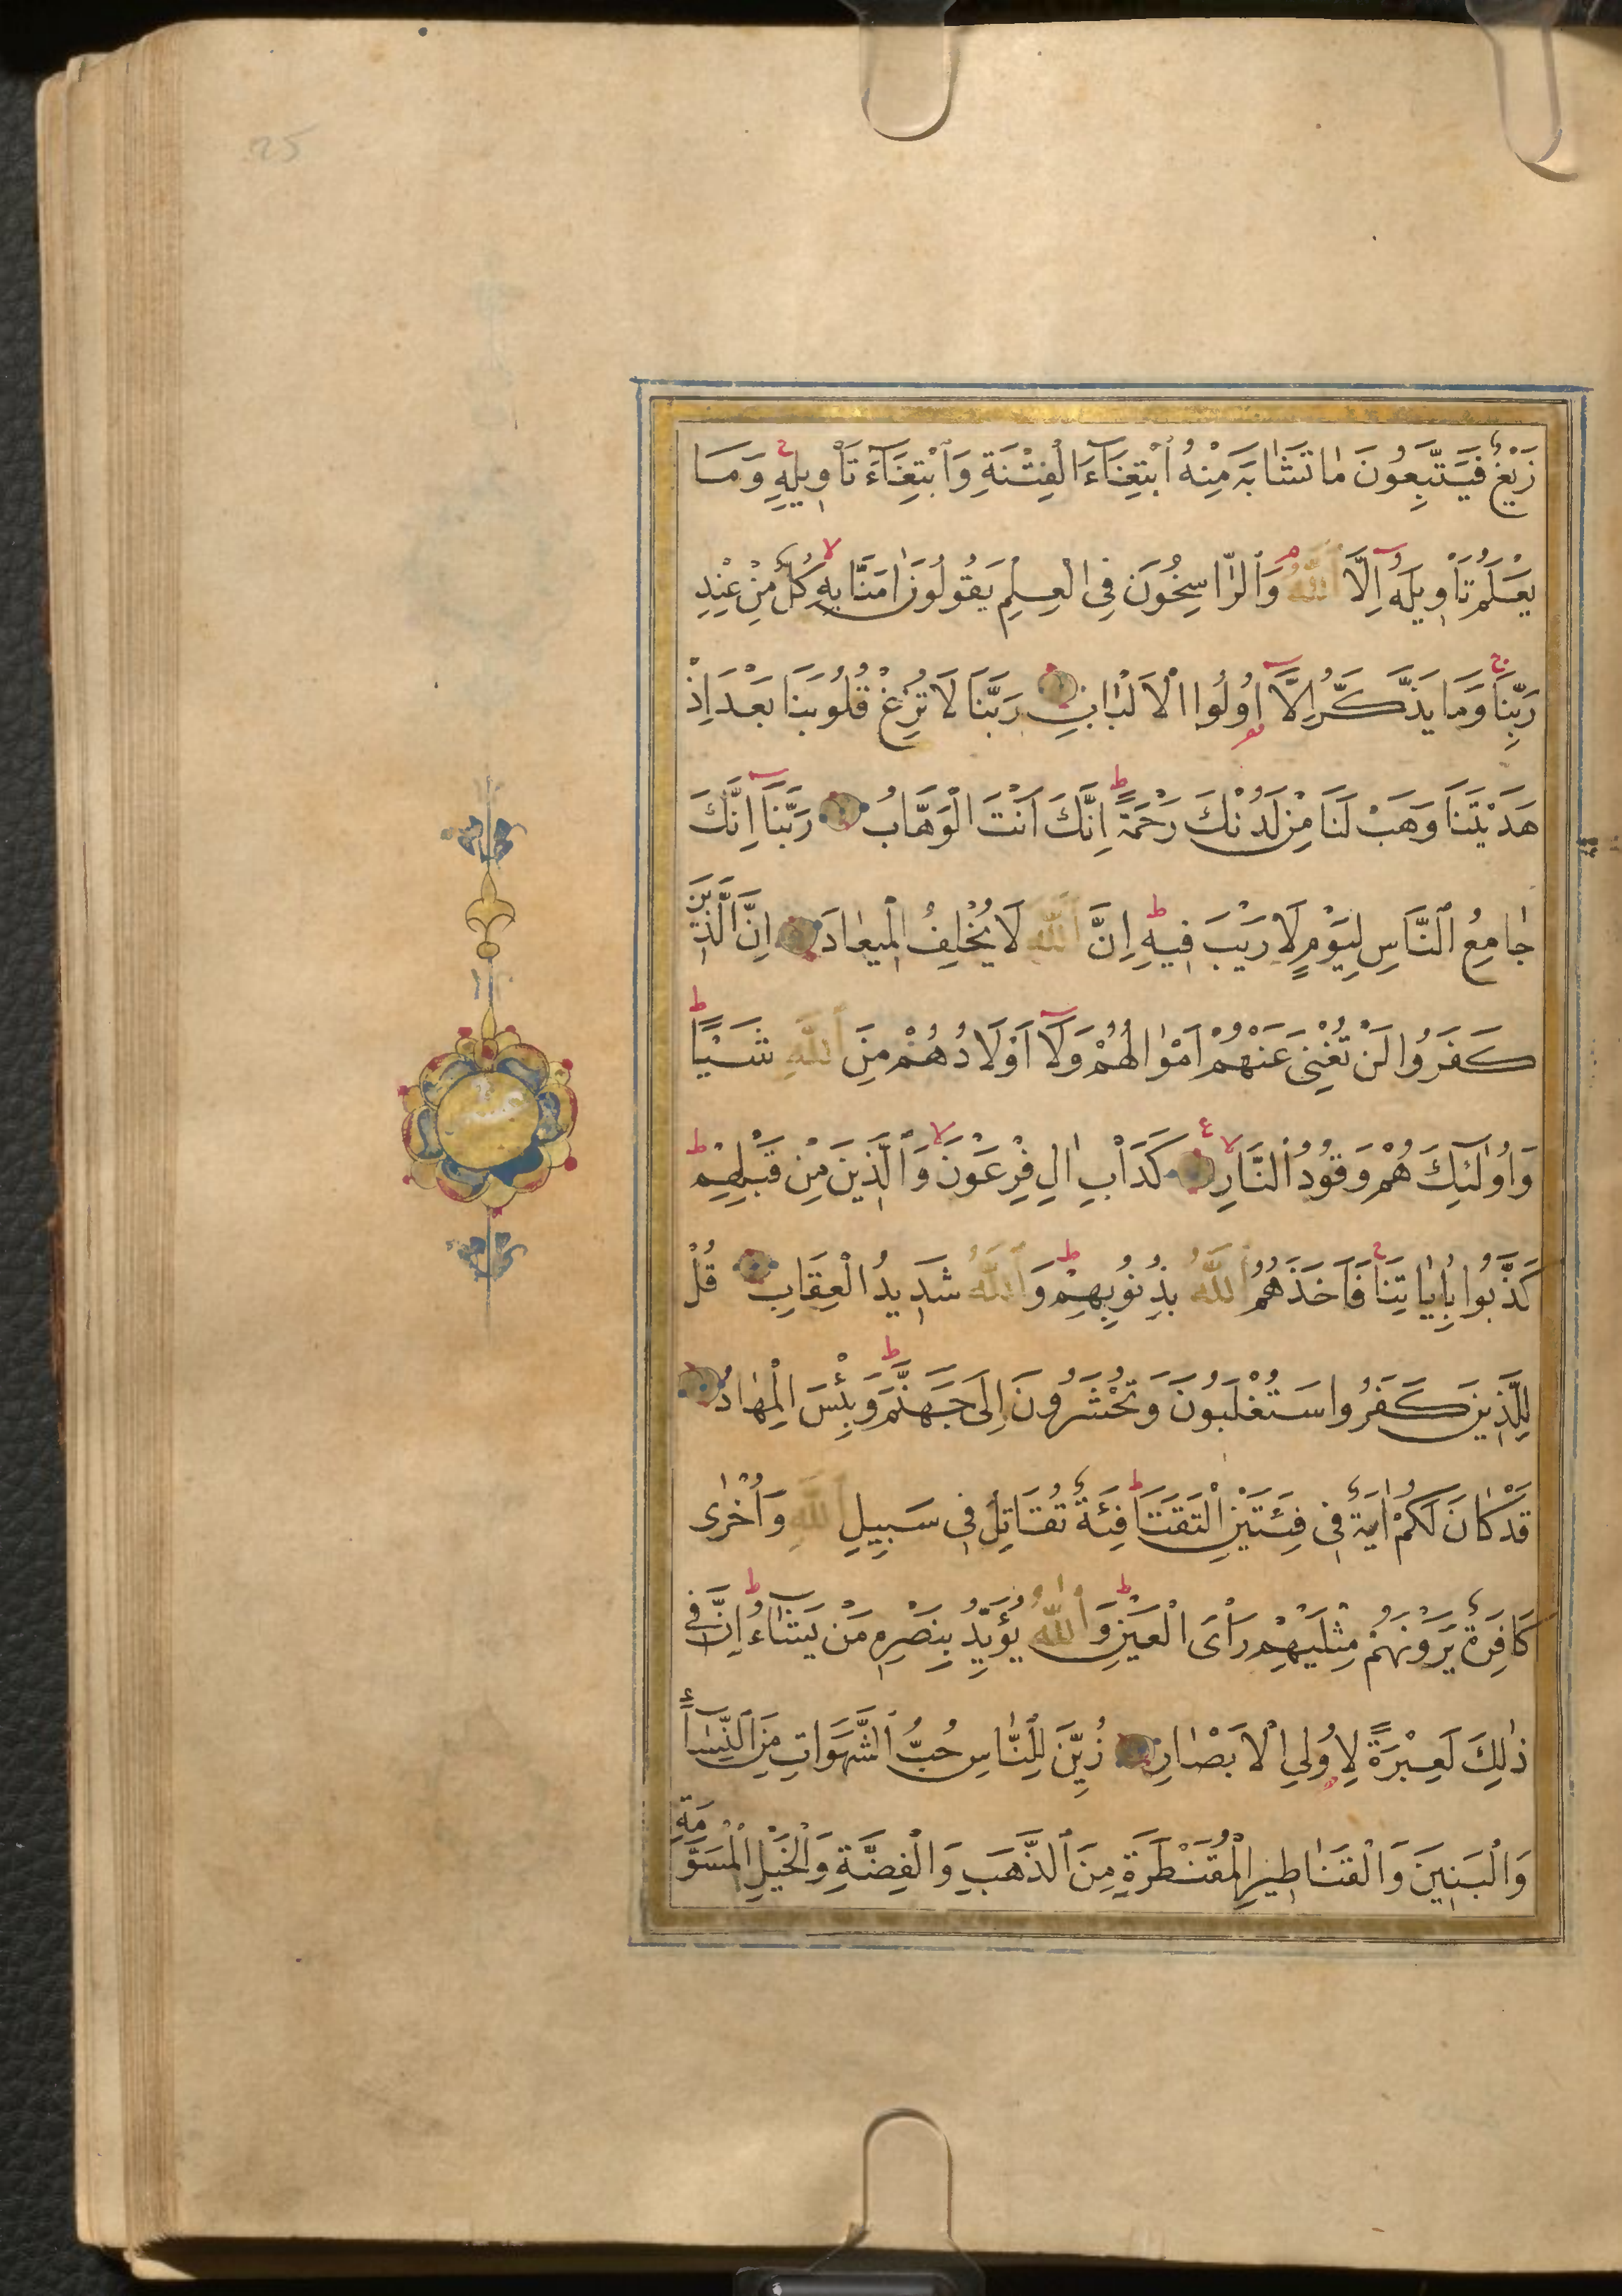 25
زَيْغٌ فَيَتَّبِعُونَ مَا تَشَابَهَ مِنْهُ ابْتِغَآءَ الْفِتْنَةِ وَابْتِغَآءَ تَأْوِيلِهِ وَمَا
يَعْلَمُ تَأْوِيلَهُ اِلَّا اللّٰهُ وَالرَّاسِخُونَ فِى الْعِلْمِ يَقُولُونَ اٰمَنَّا بِهِ كُلٌّ مِنْ عِنْدِ
رَبِّنَا وَمَا يَذَّكَّرُ اِلَّآ اُولُوا الْاَلْبَابِ رَبَّنَا لَا تُزِغْ قُلُوبَنَا بَعْدَ اِذْ
هَدَيْتَنَا وَهَبْ لَنَا مِنْ لَدُنْكَ رَحْمَةً اِنَّكَ اَنْتَ الْوَهَّابُ رَبَّنَآ اِنَّكَ
جَامِعُ النَّاسِ لِيَوْمٍ لَا رَيْبَ فِيهِ اِنَّ اللّٰهَ لَا يُخْلِفُ الْمِيعَادَ اِنَّ الَّذِينَ
كَفَرُوا لَنْ تُغْنِىَ عَنْهُمْ اَمْوَالُهُمْ وَلَآ اَوْلَادُهُمْ مِنَ اللّٰهِ شَيْئًا
وَاُولٰٓئِكَ هُمْ وَقُودُ النَّارِ كَدَأْبِ اٰلِ فِرْعَوْنَ وَالَّذِينَ مِنْ قَبْلِهِمْ
كَذَّبُوا بِاٰيَاتِنَا فَاَخَذَهُمُ اللّٰهُ بِذُنُوبِهِمْ وَاللّٰهُ شَدِيدُ الْعِقَابِ قُلْ
لِلَّذِينَ كَفَرُوا سَتُغْلَبُونَ وَتُحْشَرُونَ اِلَى جَهَنَّمَ وَبِئْسَ الْمِهَادُ
قَدْ كَانَ لَكُمْ اٰيَةٌ فِى فِئَتَيْنِ الْتَقَتَا فِئَةٌ تُقَاتِلُ فِى سَبِيلِ اللّٰهِ وَاُخْرٰى
كَافِرَةٌ يَرَوْنَهُمْ مِثْلَيْهِمْ رَأْىَ الْعَيْنِ وَاللّٰهُ يُؤَيِّدُ بِنَصْرِهِ مَنْ يَشَآءُ اِنَّ فِى
ذٰلِكَ لَعِبْرَةً لِاُولِى الْاَبْصَارِ زُيِّنَ لِلنَّاسِ حُبُّ الشَّهَوَاتِ مِنَ النِّسَآءِ
وَالْبَنِينَ وَالْقَنَاطِيرِ الْمُقَنْطَرَةِ مِنَ الذَّهَبِ وَالْفِضَّةِ وَالْخَيْلِ الْمُسَوَّمَةِ